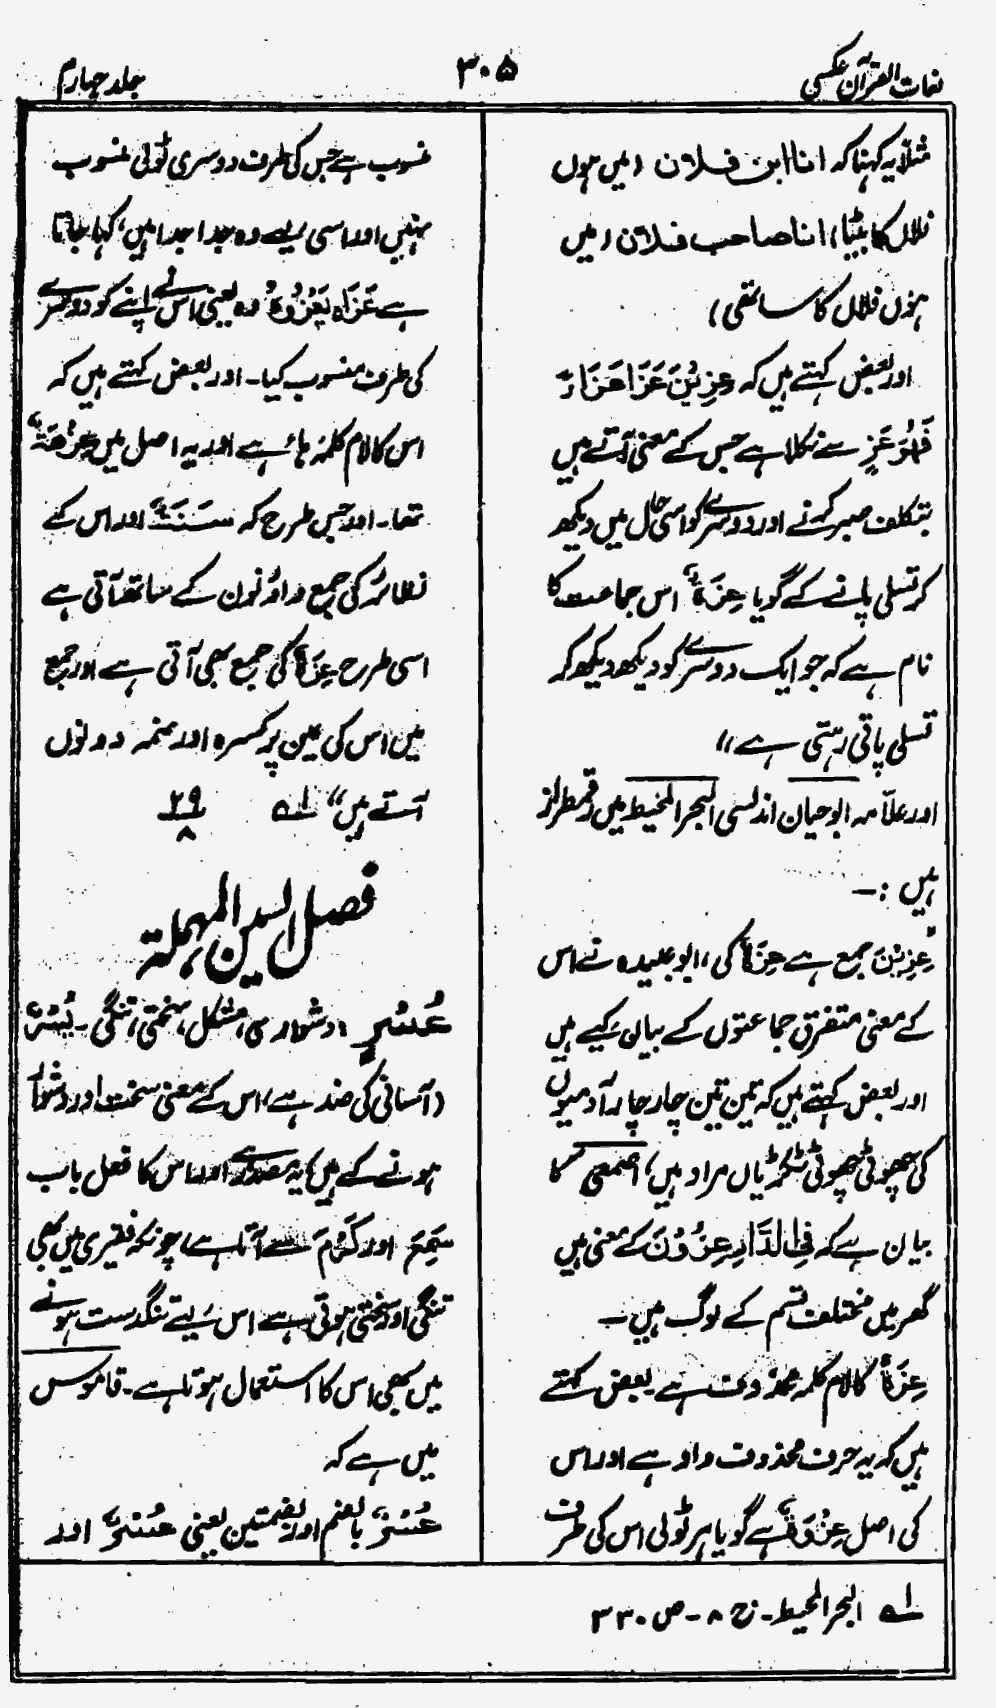 لغات القرآن عکسی
۳۰۵
جلد چہارم
مثلاً یہ کہنا کہ انا ابن فلان (میں ہوں
فلاں کا بیٹا) انا صاحب فلان (میں
ہوں فلاں کا ساتھی)
اور بعض کہتے ہیں کہ عِزِیْنَ عَزَا عَزَاءً
فَهُوَ عَزٍ سے نکلا ہے جس کے معنی آتے ہیں
بتکلف صبر کرنے اور دوسرے کو اسی حال میں دیکھ
کر تسلی پانے کے گویا عِزَةٌ اس جماعت کا
نام ہے کہ جو ایک دوسرے کو دیکھ دیکھ کر
تسلی پاتی رہتی ہے"
اور علّامہ ابوحیان اندلسی البحر المحیط میں رقمطراز
ہیں :—
"عِزِیْنَ جمع ہے عِزَةٌ کی، ابو عبیدہ نے اس
کے معنی متفرق جماعتوں کے بیان کیے ہیں
اور بعض کہتے ہیں کہ تین تین چار چار آدمیوں
کی چھوٹی چھوٹی ٹکڑیاں مراد ہیں، اصمعی کا
بیان ہے کہ فِی الدَّارِ عِزُوْنَ کے معنی ہیں
گھر میں مختلف قسم کے لوگ ہیں۔
عِزَةٌ کا لام کلمہ محذوف ہے۔ بعض کہتے
ہیں کہ یہ حرف محذوف واو ہے اور اس
کی اصل عِزْوَةٌ ہے گویا ہر ٹولی اس کی طرف
منسوب ہے جس کی طرف دوسری ٹولی منسوب
نہیں اور اسی لیے وہ جدا جدا ہیں، کہا جاتا
ہے عَزَاہ یَعْزُوْہُ وہ یعنی اس نے اپنے کو دوسرے
کی طرف منسوب کیا۔ اور بعض کہتے ہیں کہ
اس کا لام کلمہ ہاء ہے اور یہ اصل میں عِزْهَةٌ
تھا۔ اور جس طرح کہ سَنَةٌ اور اس کے
نظائر کی جمع واؤ نون کے ساتھ آتی ہے
اسی طرح عِزَةٌ کی جمع بھی آتی ہے اور جمع
میں اس کی عین پر کسرہ اور ضمہ دونوں
آتے ہیں" ۱ے ۲۹/۸
فصل السین المہملۃ
عُسْرٍ (دشواری، مشکل، سختی، تنگی۔ یُسْرٌ
(آسانی کی ضد ہے) اس کے معنی سخت اور دشوار
ہونے کے ہیں یہ مصدر ہے اور اس کا فعل باب
سَمِعَ اور کَرُمَ سے آتا ہے، چونکہ فقیری میں بھی
تنگی اور سختی ہوتی ہے اس لیے تنگدست ہونے
میں بھی اس کا استعمال ہوتا ہے۔ قاموس
میں ہے کہ
عُسْرٌ بالضم اور بضمتین یعنی عُسُرٌ اور
۱ے البحر المحیط۔ ج ۸۔ ص ۳۳۰